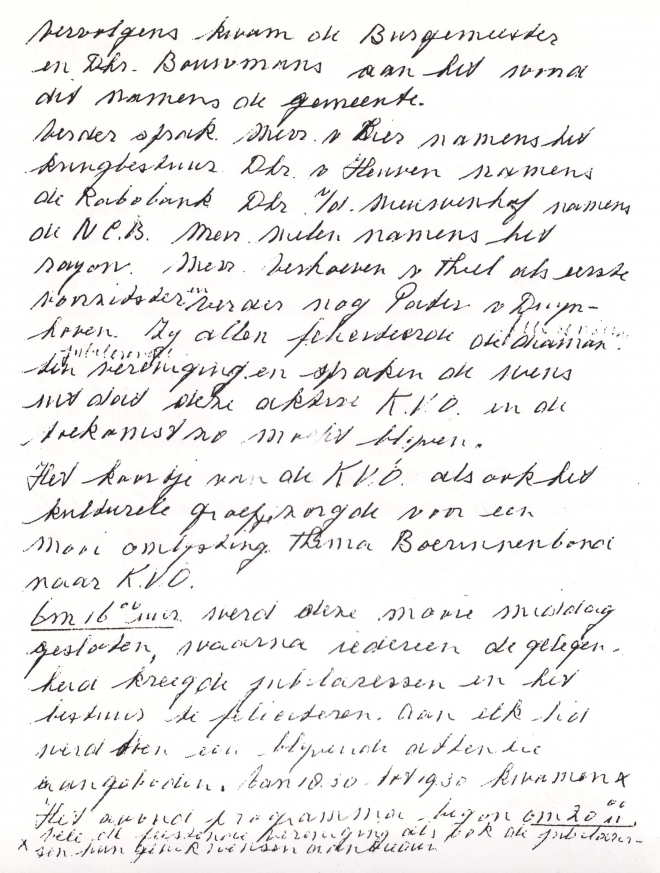 Vervolgens kwam de Burgemeester
en Dhr. Bouwmans aan het woord
dit namens de gemeente.
Verder sprak Mevr. v Lier namens het
kringbestuur Dhr. v Heuven namens
de Rabobank Dhr. Meuwenhof namens
de N.C.B. Mevr. Nelen namens het
rayon. Mevr. Verhoeven v Thiel als eerste
voorzitster en verder nog Pater v Duyn-
hoven. Zij allen feliciteerde de diaman-
ten jubilerende vereniging en spraken de wens
uit dat deze aktieve K.V.O. in de
toekomst zo mocht blijven.
Het koortje van de K.V.O. als ook het
kulturele groepje zorgde voor een
mooi omlijsting thema Boerinnenbond
naar K.V.O.
Om 16 00 uur werd deze mooie middag
gesloten, waarna iedereen de gelegen-
heid kreeg de jubilaressen en het
bestuur te feliciteren. Aan elk lid
werd toen een blijvende attentie
aangeboden. Van 18.30 tot 19.30 kwamen x
Het avond programma begon om 20 00 u.
x vele de feestende vereniging als ook de jubilares-
sen hun gelukwensen aanbieden